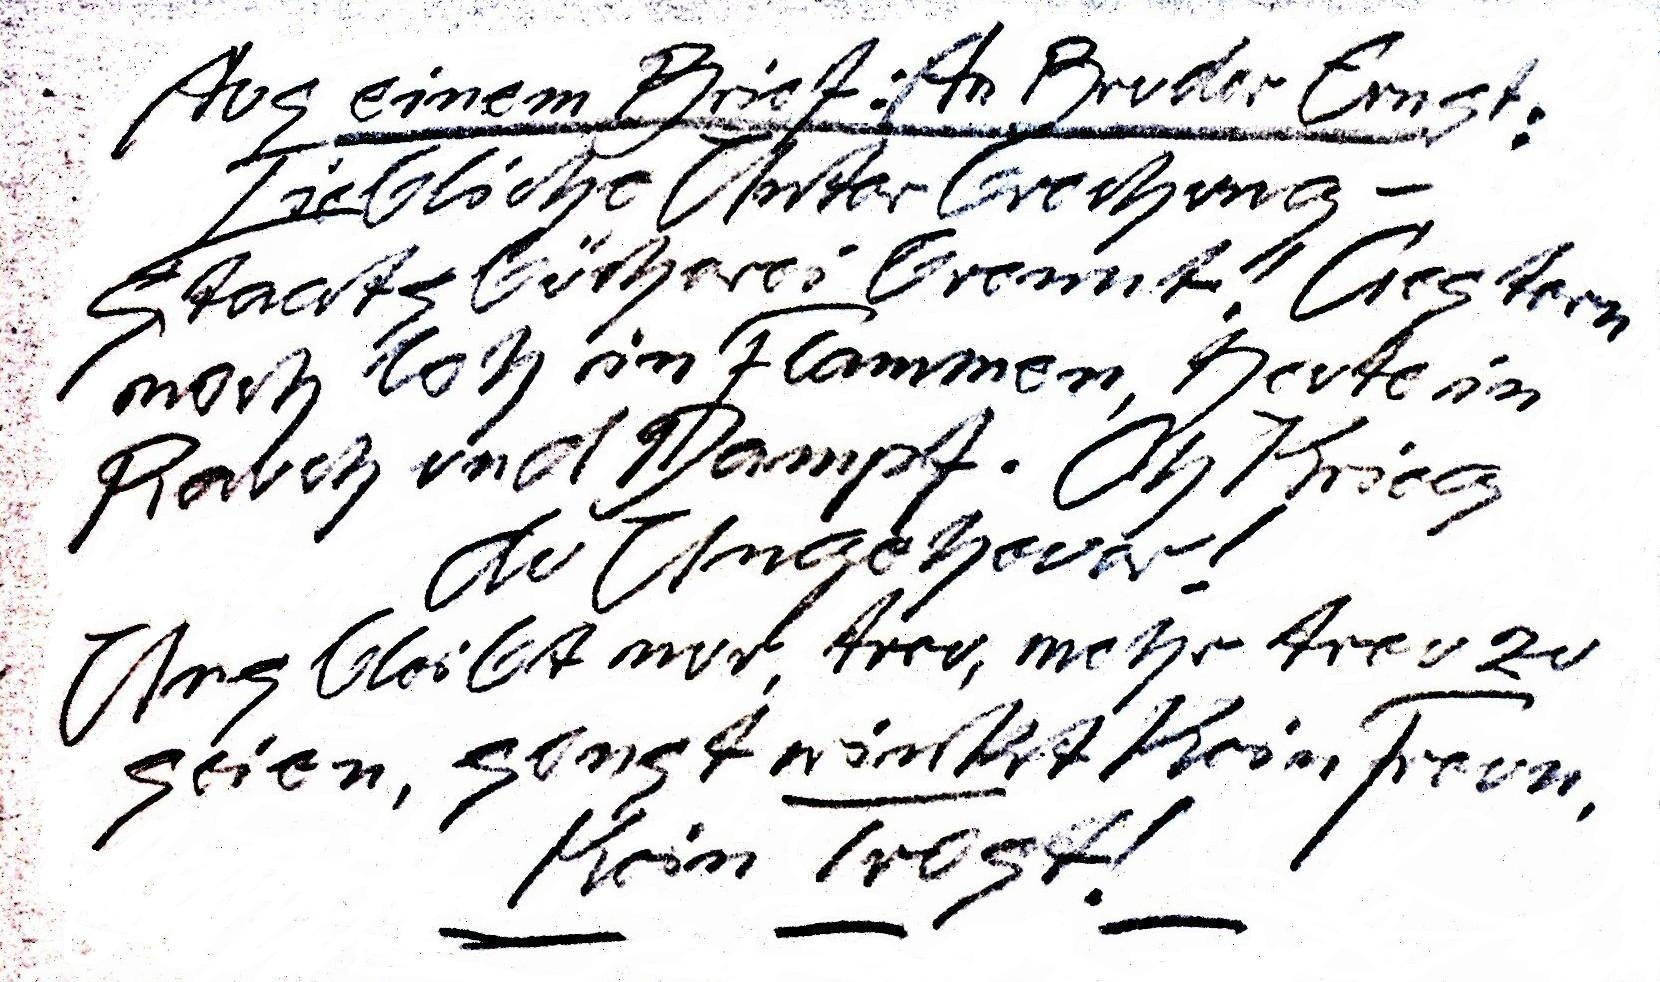 Aus einem Brief: An Bruder Ernst:
Liebliche Unterbrechung –
Staatsbücherei brennt!" Gestern
noch loh in Flammen, heute in
Rauch und Dampf. Oh Krieg
du Ungeheuer!
Uns bleibt nur, treu, mehr treu zu
seien, sonst winkt kein Traum,
kein Trost!